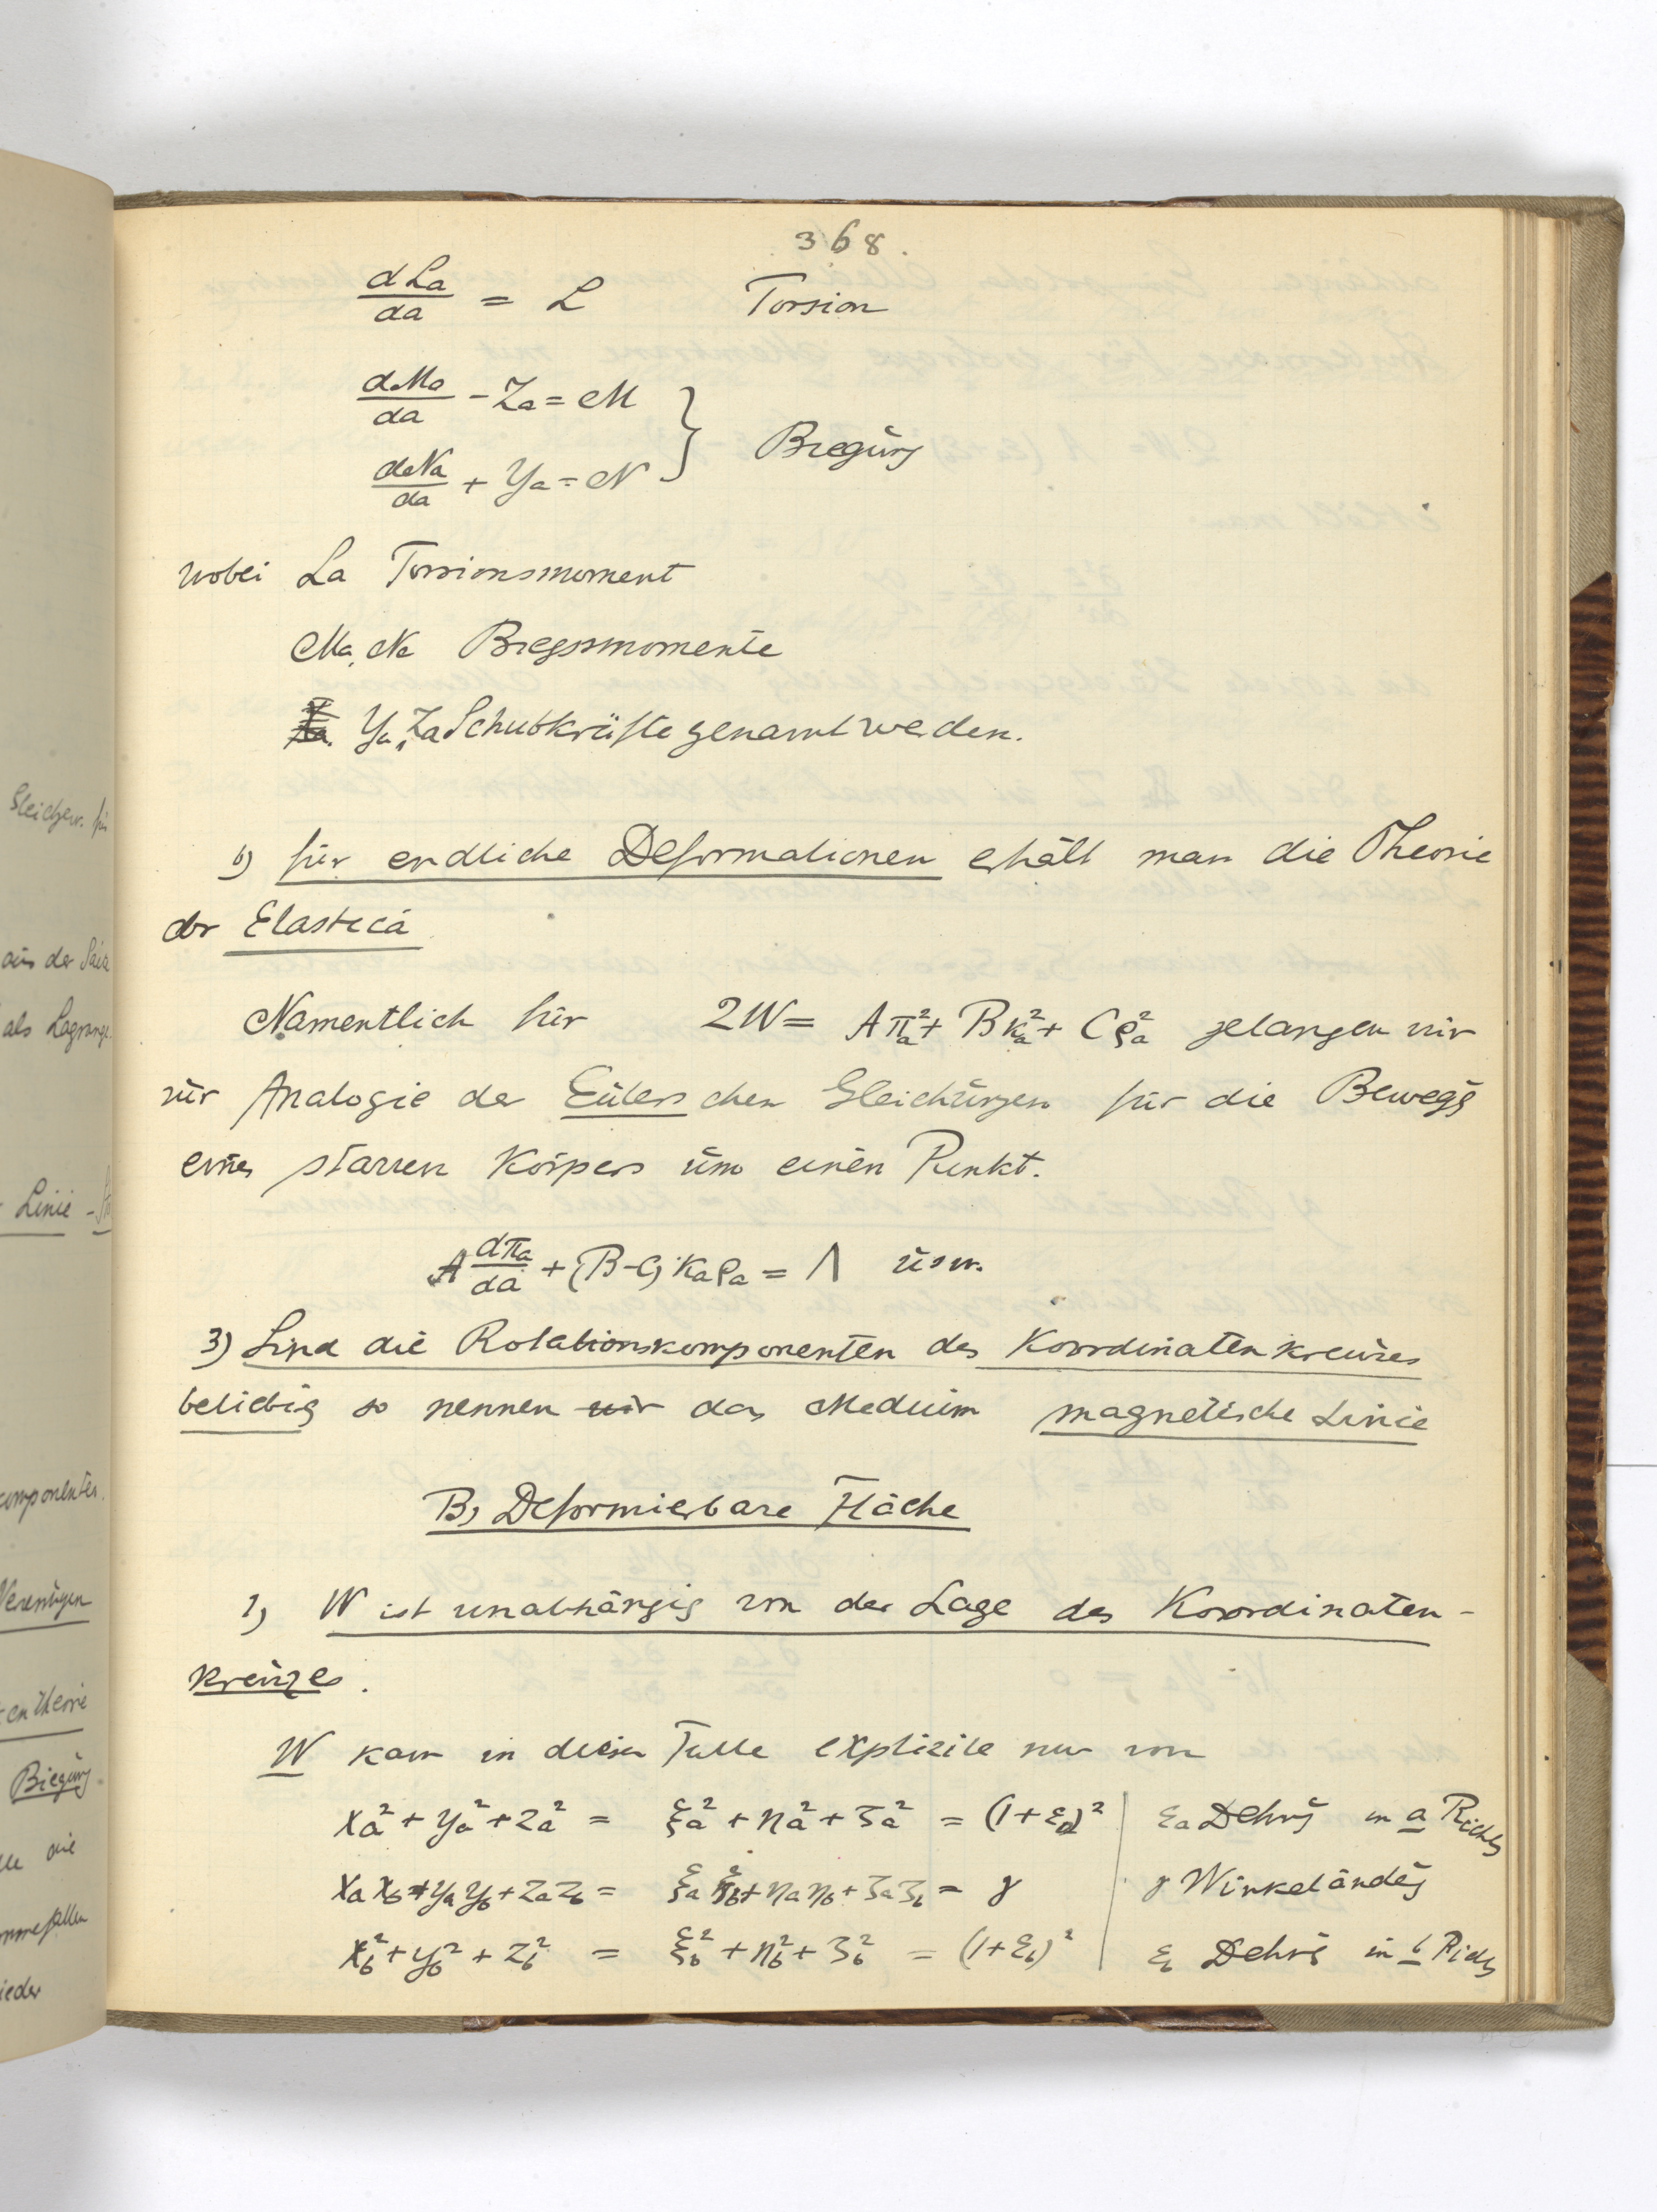 368.
dLa/da = L Torsion
dMa/da - Za = M
dNa/da + Ya = N } Biegūng
wobei La Torsionsmoment
Ma, Na Biegsmomente
Ya, Za Schubkräfte genannt werden.
b) für endliche Deformationen erhält man die Theorie
der Elastica
Namentlich für 2W = Aπa² + Bκa² + Cρa² gelangen wir
zur Analogie der Eulerschen Gleichungen für die Bewegg
eines starren Körpers um einen Punkt.
A dπa/da + (B-C) κaρa = Λ usw.
3) Sind die Rotationskomponenten des Koordinatenkreuzes
beliebig so nennen wir das Medium magnetische Linie
B) Deformierbare Fläche
1) W ist unabhängig von der Lage des Koordinaten-
kreuzes.
W kann in diesem Falle explizite nur von
xa² + ya² + za² = ξa² + ηa² + ζa² = (1+εa)² | εa Dehng in a Richtg
xa xb + ya yb + za zb = ξa ξb + ηa ηb + ζa ζb = γ | γ Winkeländg
xb² + yb² + zb² = ξb² + ηb² + ζb² = (1+εb)² | εb Dehng in b Richtg
Gleichgew. für
aus der
als Lagrange
Linie -
componenten.
Biegung